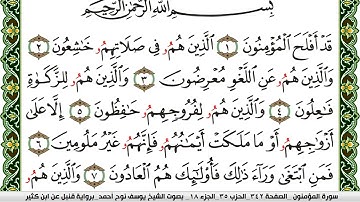 بِسْمِ اللَّهِ الرَّحْمَٰنِ الرَّحِيمِ
قَدْ أَفْلَحَ الْمُؤْمِنُونَ ١ الَّذِينَ هُمُۥ فِي صَلَاتِهِمُۥ خَاشِعُونَ ٢
وَالَّذِينَ هُمُۥ عَنِ اللَّغْوِ مُعْرِضُونَ ٣ وَالَّذِينَ هُمُۥ لِلزَّكَوٰةِ
فَاعِلُونَ ٤ وَالَّذِينَ هُمُۥ لِفُرُوجِهِمُۥ حَافِظُونَ ٥ إِلَّا عَلَىٰ
أَزْوَاجِهِمُۥ أَوْ مَا مَلَكَتْ أَيْمَانُهُمُۥ فَإِنَّهُمُۥ غَيْرُ مَلُومِينَ ٦
فَمَنِ ابْتَغَىٰ وَرَاءَ ذَٰلِكَ فَأُولَٰئِكَ هُمُ الْعَادُونَ ٧ وَالَّذِينَ هُمُۥ
سورة المؤمنون _ الصفحة ٣٤٢ _ الحزب ٣٥ _ الجزء ١٨ _ بصوت الشيخ يوسف نوح أحمد _ برواية قنبل عن ابن كثير